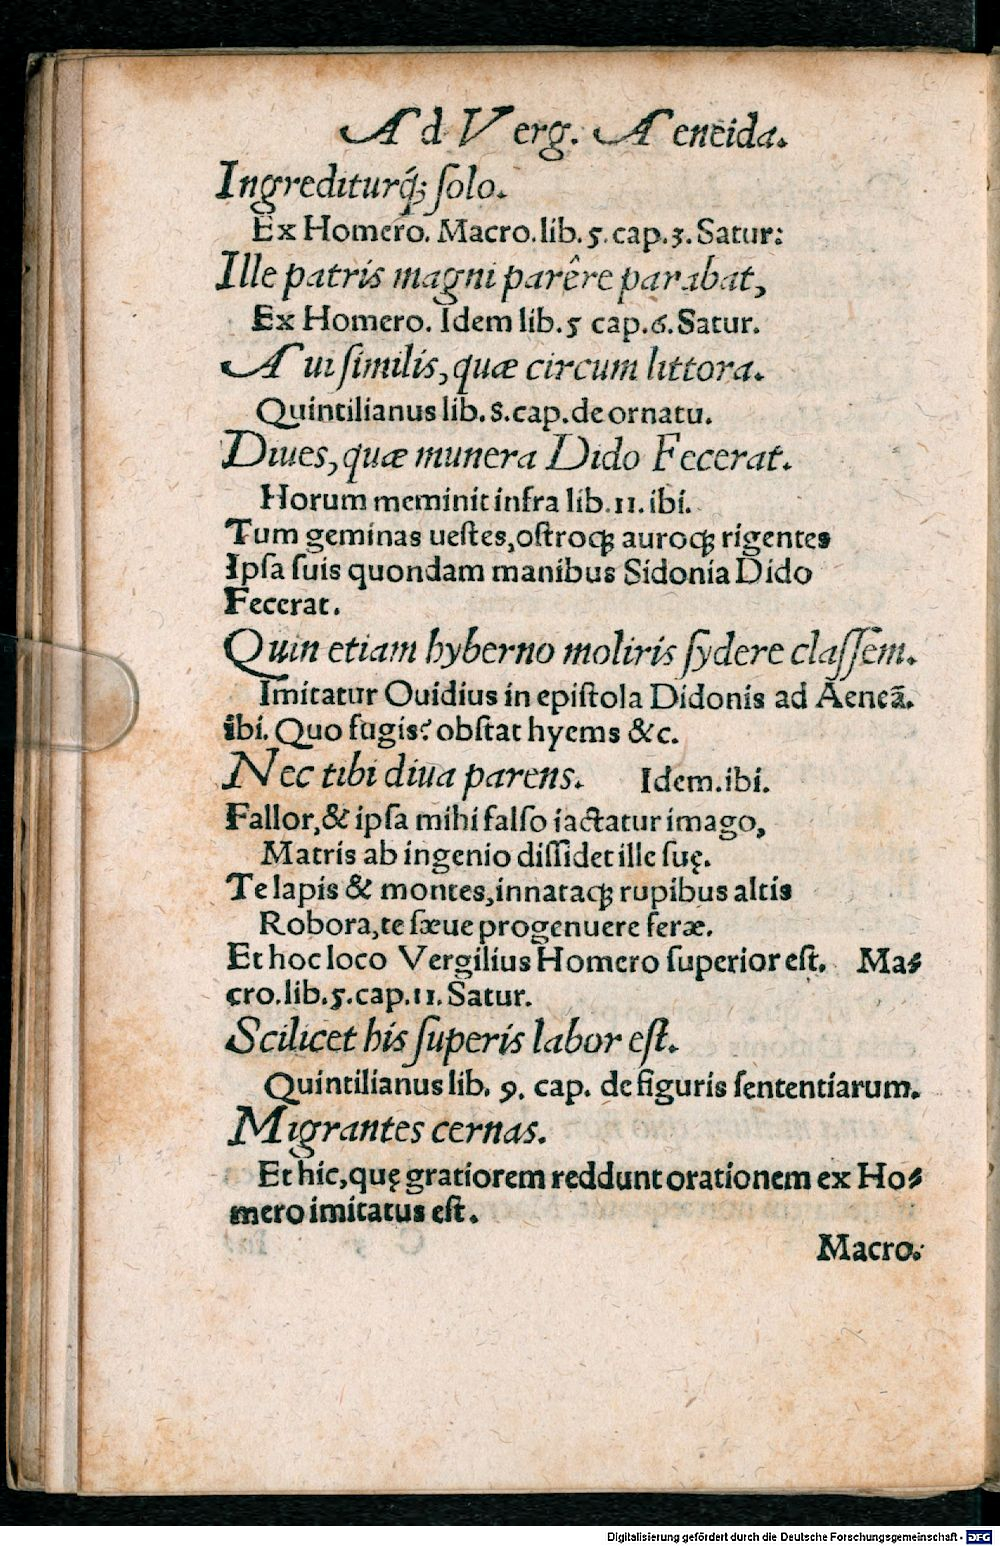 Ad Verg. Aeneida.
Ingrediturq́; ſolo.
Ex Homero. Macro. lib. 5. cap. 3. Satur:
Ille patris magni parêre parabat,
Ex Homero. Idem lib. 5 cap. 6. Satur.
Aui ſimilis, quæ circum littora.
Quintilianus lib. 8. cap. de ornatu.
Diues, quæ munera Dido Fecerat.
Horum meminit infra lib. 11. ibi.
Tum geminas ueſtes, oſtroq; auroq; rigentes
Ipſa ſuis quondam manibus Sidonia Dido
Fecerat.
Quin etiam hyberno moliris ſydere claſſem.
Imitatur Ouidius in epiſtola Didonis ad Aeneã.
ibi. Quo fugis? obſtat hyems &c.
Nec tibi diua parens. Idem. ibi.
Fallor, & ipſa mihi falſo iactatur imago,
Matris ab ingenio diſſidet ille ſuę.
Te lapis & montes, innataq; rupibus altis
Robora, te ſæue progenuere feræ.
Et hoc loco Vergilius Homero ſuperior eſt. Ma-
cro. lib. 5. cap. 11. Satur.
Scilicet his ſuperis labor eſt.
Quintilianus lib. 9. cap. de figuris ſententiarum.
Migrantes cernas.
Et hic, quę gratiorem reddunt orationem ex Ho-
mero imitatus eſt.
Macro.
Digitalisierung gefördert durch die Deutsche Forschungsgemeinschaft - DFG